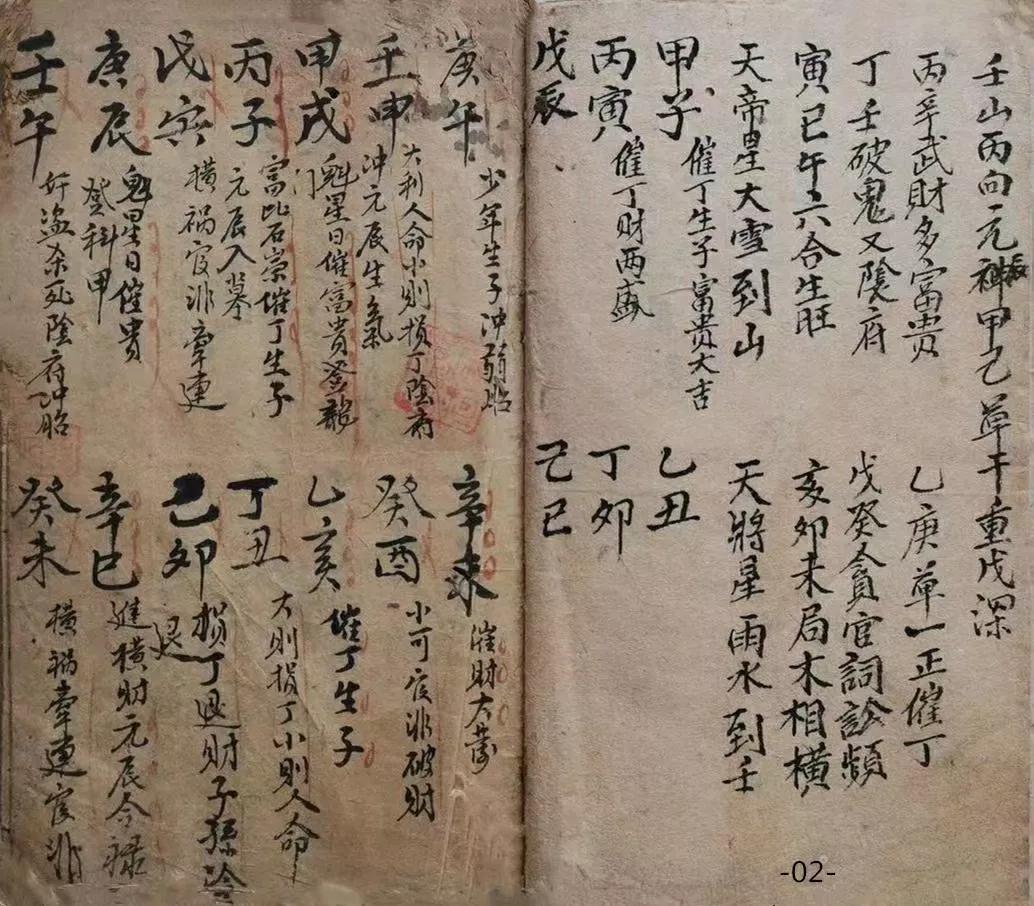 壬山丙向元神甲己草干重戊深
丙辛武財多富貴 乙庚單一正催丁
丁壬破鬼又陰府 戊癸貪官詞訟頻
寅巳午六合生旺 亥卯未局木相橫
天帝星大雪到山 天將星雨水到壬
甲子 催丁生子富貴大吉 乙丑
丙寅 催丁財兩盛 丁卯
戊辰 己巳
庚午 少年生子沖胎 辛未 催財大
壬申 大利人命小則損丁陰府沖元辰生氣 癸酉 小可官非破財
甲戌 魁星日催富貴登龍門 乙亥 催丁生子
丙子 富比石崇催丁生子元辰入墓 丁丑 大則損丁小則人命
戊寅 橫禍官非牽連 己卯 損丁退財子孫冷退
庚辰 魁星日催貴登科甲 辛巳 進橫財元辰合祿
壬午 奸盜杀死陰府沖胎 癸未 橫禍牽連官非
-02-